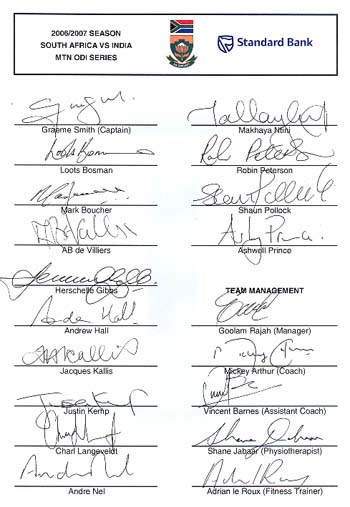 2006/2007 SEASON
SOUTH AFRICA VS INDIA
MTN ODI SERIES
Standard Bank
Graeme Smith (Captain)
Loots Bosman
Mark Boucher
AB de Villiers
Herschelle Gibbs
Andrew Hall
Jacques Kallis
Justin Kemp
Charl Langeveldt
Andre Nel
Makhaya Ntini
Robin Peterson
Shaun Pollock
Ashwell Prince
TEAM MANAGEMENT
Goolam Rajah (Manager)
Mickey Arthur (Coach)
Vincent Barnes (Assistant Coach)
Shane Jabaar (Physiotherapist)
Adrian le Roux (Fitness Trainer)